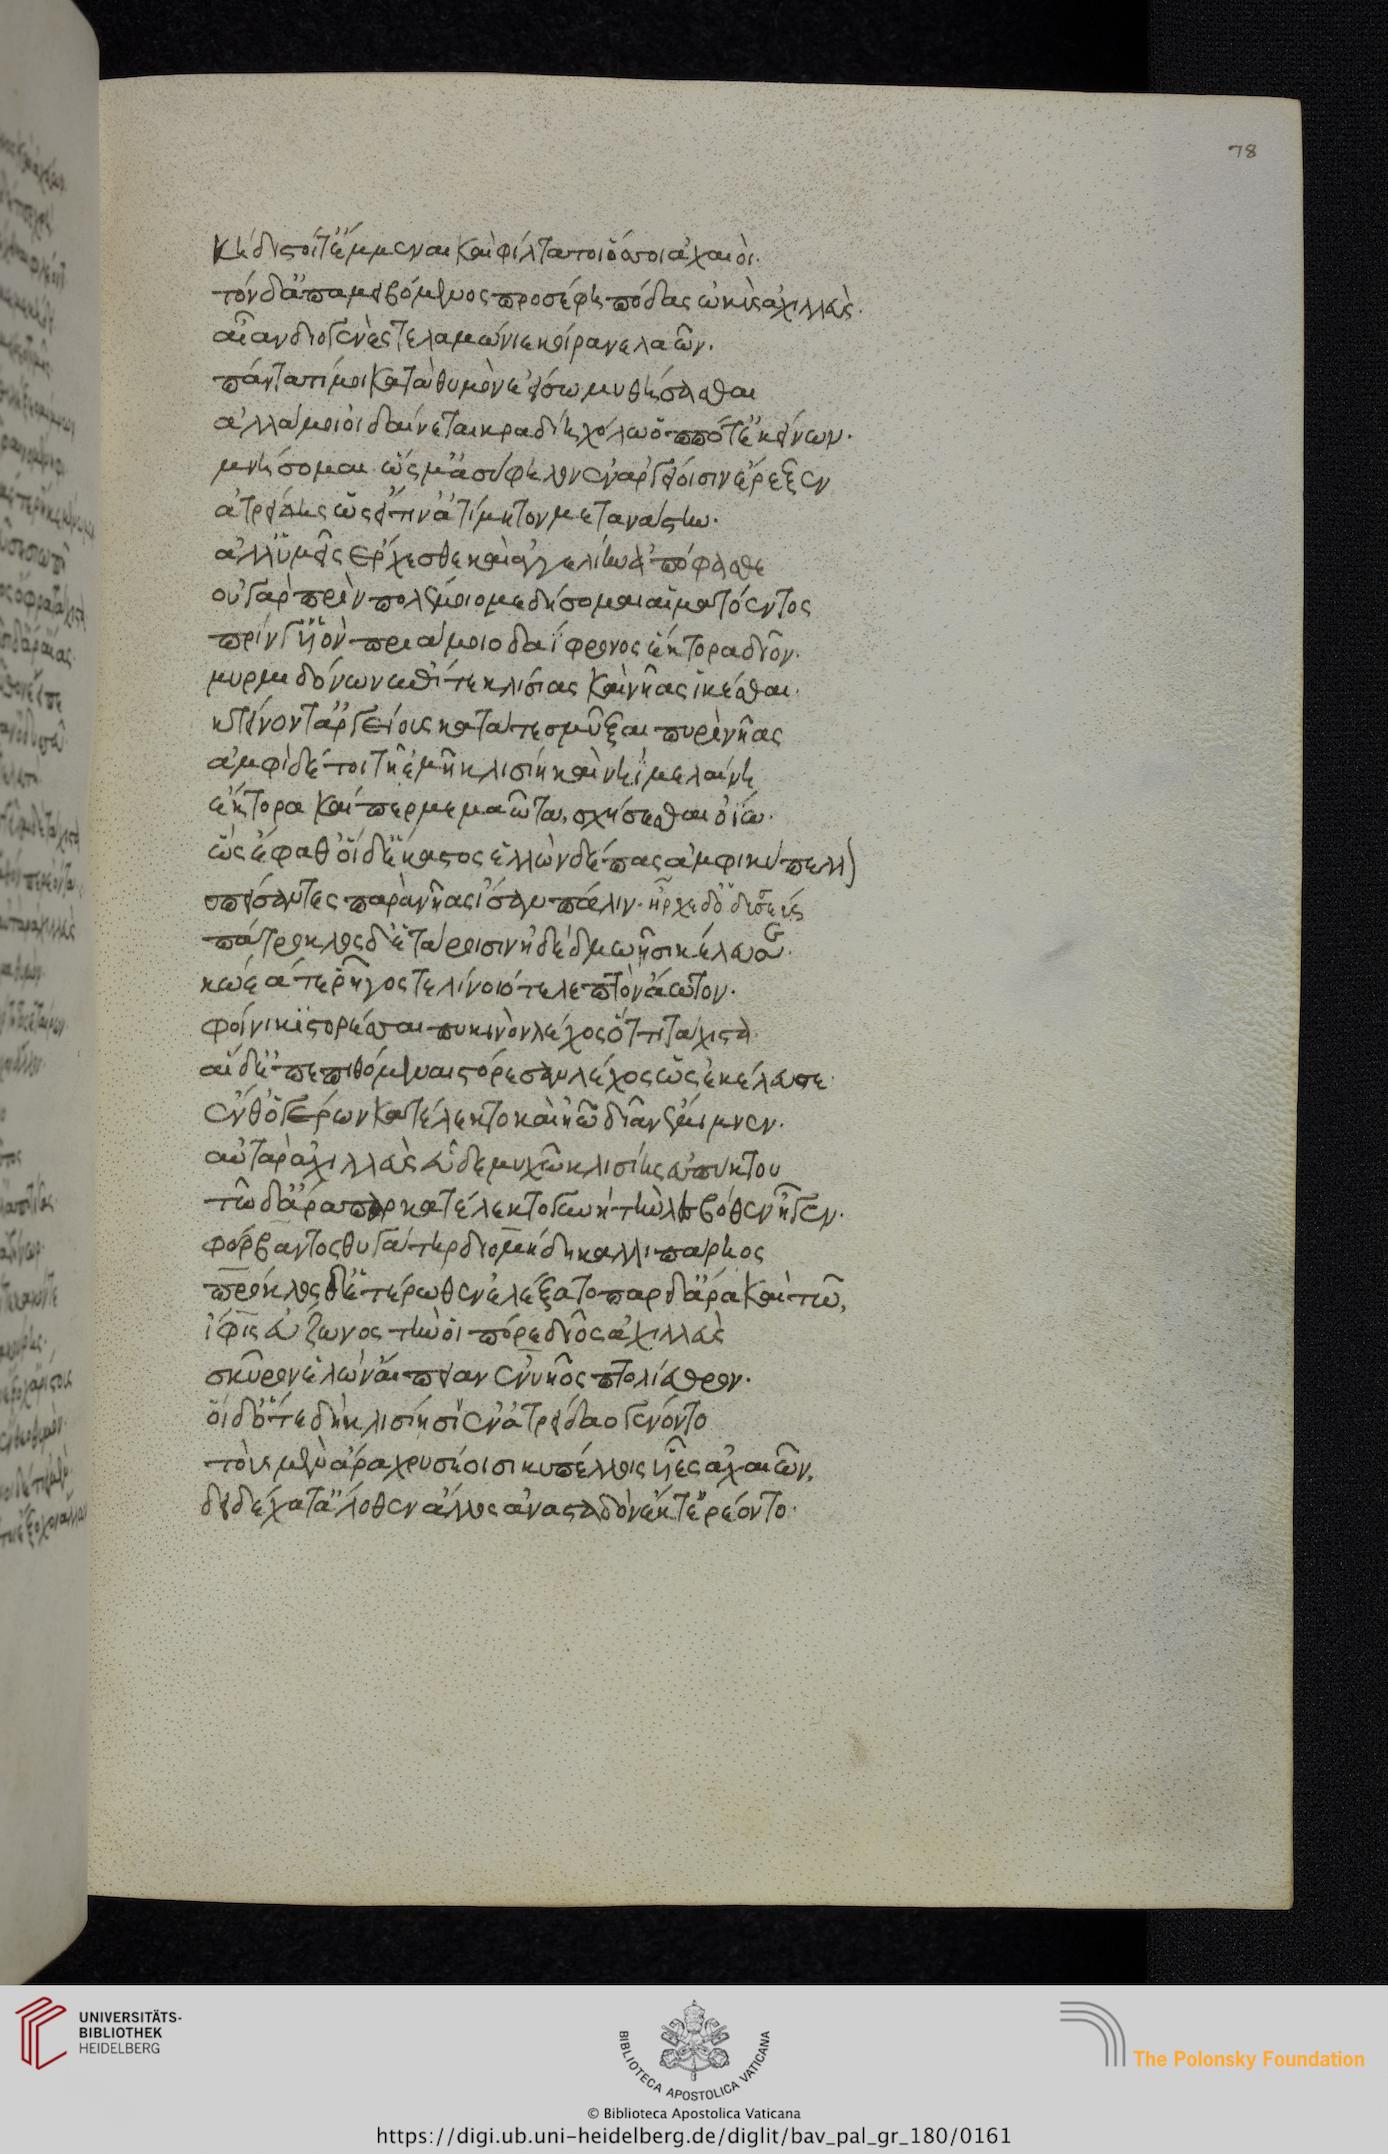 78
κήδιστοί τ' ἔμμεναι καὶ φίλτατοι ὅσοι ἀχαιοί.
τόν δ' ἀπαμειβόμενος προσέφη πόδας ὠκὺς ἀχιλλεὺς.
αἶαν διογενὲς τελαμώνιε κοίρανε λαῶν.
πάντα τί μοι κατὰ θυμὸν ἐείσω μυθήσασθαι
ἀλλά μοι οἰδαίνεται κραδίη χόλω ὅππότ' ἐκείνων.
μνήσομαι ὥς μ' ἀσύφηλον ἐν ἀργείοισιν ἔρεξεν
ἀτρείδης ὡς εἴ τιν' ἀτίμητον μετανάστην.
ἀλλ' ὑμεῖς ἔρχεσθε καὶ ἀγγελίην ἀπόφασθε
οὐ γὰρ πρὶν πολέμοιο μεδήσομαι αἱματόεντος
πρίν γ' υἱὸν πριάμοιο δαΐφρονος ἕκτορα δῖον.
μυρμιδόνων ἐπί τε κλισίας καὶ νῆας ἱκέσθαι.
κτείνοντ' ἀργείους κατά τε σμῦξαι πυρὶ νῆας
ἀμφὶ δέ τοι τῆ ἐμῆ κλισίη καὶ νηῒ μελαίνη
ἕκτορα καί περ μεμαῶτα, σχήσεσθαι ὀΐω.
ὣς ἔφαθ' οἱ δὲ ἕκαστος ἑλὼν δέπας ἀμφικύπελλ)
σπείσαντες παρὰ νῆας ἴσαν πάλιν. ἦρχε δ' ὀδυσσεύς
πάτροκλος δ' ἑτάροισιν ἠδὲ δμωῆσι κέλευσεν.
κώεά τε ῥῆγός τε λίνοιό τε λεπτὸν ἄωτον.
φοίνικι στορέσαι πυκινὸν λέχος ὅττι τάχιστα.
αἱ δ' ἐπιπειθόμεναι στόρεσαν λέχος ὡς ἐκέλευσε.
ἔνθ' ὁ γέρων κατέλεκτο καὶ ἠῶ δῖαν ἔμιμνεν.
αὐτὰρ ἀχιλλεὺς εὗδε μυχῶ κλισίης εὐπήκτου
τῶ δ' ἄρα παρκατέλεκτο γυνή τὴν λεσβόθεν ἦγεν.
φόρβαντος θυγάτηρ διομήδη καλλιπάρηος
πάτροκλος δ' ἑτέρωθεν ἐλέξατο παρ δ' ἄρα καὶ τῶ,
ἶφις εὔζωνος τήν οἱ πόρε δῖος ἀχιλλεὺς
σκῦρον ἑλὼν αἰπεῖαν ἐνυῆος πτολίεθρον.
οἱ δ' ὅτε δὴ κλισίησιν ἐν ἀτρείδαο γένοντο
τοὺς μὲν ἄρα χρυσέοισι κυπέλλοις υἷες ἀχαιῶν,
δειδέχατ' ἄλοθεν ἄλλος ἀνασταδὸν ἔκ τ' ἐρέοντο.
UNIVERSITÄTS-
BIBLIOTHEK
HEIDELBERG
BIBLIOTECA APOSTOLICA VATICANA
The Polonsky Foundation
© Biblioteca Apostolica Vaticana
https://digi.ub.uni-heidelberg.de/diglit/bav_pal_gr_180/0161